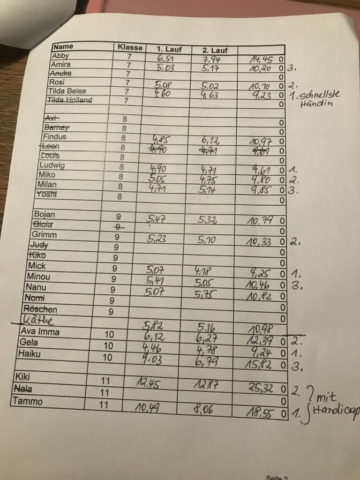 Name Klasse 1. Lauf 2. Lauf
Abby 7 6,51 7,94 14,45 0
Amira 7 5,03 5,17 10,20 0 3.
Anuka 7 0
Rosi 7 5,08 5,02 10,10 0 2.
Tilda Beise 7 4,60 4,63 9,23 0 1. schnellste
Tilda Holland 7 0 Hündin
0
Avi 8 0
Barney 8 0
Findus 8 4,85 6,12 10,97 0
Leon 8 4,90 4,71 9,61 0
Louis 8 0
Ludwig 8 4,90 4,71 9,61 0 1.
Miko 8 5,05 4,75 9,80 0 2.
Milan 8 4,71 5,14 9,85 0 3.
Yoshi 8 0
0
Bojan 9 5,47 5,32 10,79 0
9 0
Grimm 9 5,23 5,10 10,33 0 2.
Judy 9 0
Kiko 9 0
Mick 9 5,07 4,18 9,25 0 1.
Minou 9 5,41 5,05 10,46 0 3.
Nanu 9 5,07 5,75 10,82 0
Nomi 9 0
Röschen 9 0
Käthe 5,82 5,16 10,98 0
Ava Imma 10 6,12 6,27 12,39 0 2.
Gela 10 4,46 4,78 9,24 0 1.
Haiku 10 9,03 6,79 15,82 0 3.
0
Kiki 11 12,45 12,87 25,32 0 2. } mit
Nala 11 0 Handicap
Tammo 11 10,49 8,06 18,55 0 1.
Seite 2